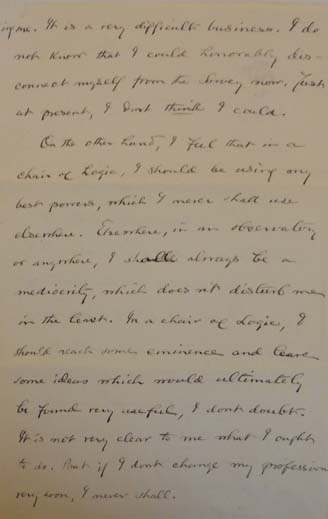 ing me. It is a very difficult business. I do
not know that I could honorably dis-
connect myself from the Survey now. Just
at present, I dont think I could.
On the other hand, I feel that in a
chair of Logic, I should be using my
best powers, which I never shall use
elsewhere. Elsewhere, in an observatory
or anywhere, I shall always be a
mediocrity, which does n't disturb me
in the least. In a chair of Logic, I
should reach some eminence and leave
some ideas which would ultimately
be found very useful, I dont doubt.
It is not very clear to me what I ought
to do. But if I dont change my profession
very soon, I never shall.